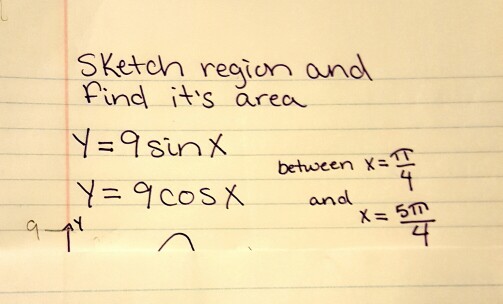 Sketch region and
find it's area
Y=9sinX
Y=9cosX
between x=π/4
and
x=5π/4
9 Y